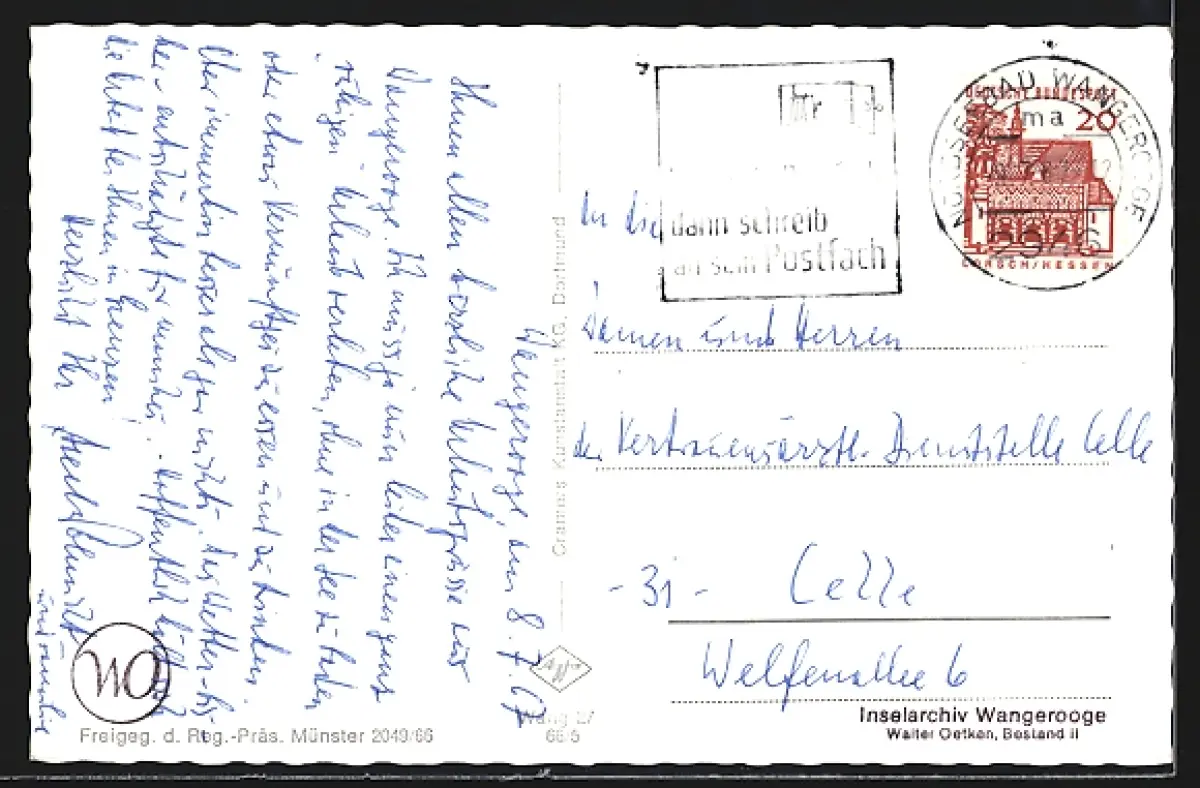 Wangerooge, den 8.7.67
Ihnen allen herzliche Urlaubsgrüße aus
Wangerooge. Ich muss ja nun leider einen ganz
ruhigen Urlaub verleben, ohne in der See zu baden
oder etwas Vernünftiges zu essen und zu trinken.
Aber immerhin besser als gar nichts. Das Wetter
bei - entschädigt für manches. Hoffentlich
die Arbeit bei Ihnen in Grenzen!
Herzlichst Ihr
und Familie
dann schreib
an sein Postfach
NORDSEEBAD WANGEROOGE
ma
2946
DEUTSCHE BUNDESPOST
20
LORSCH/HESSEN
An die
Damen und Herren
der Vertrauensärztl. Dienststelle Celle
- 31 - Celle
Welfenallee 6
Cramers Kunstanstalt KG, Dortmund
Agfa
Wang 27
66/5
WO
Freigeg. d. Reg.-Präs. Münster 2049/66
Inselarchiv Wangerooge
Walter Oetken, Bestand II